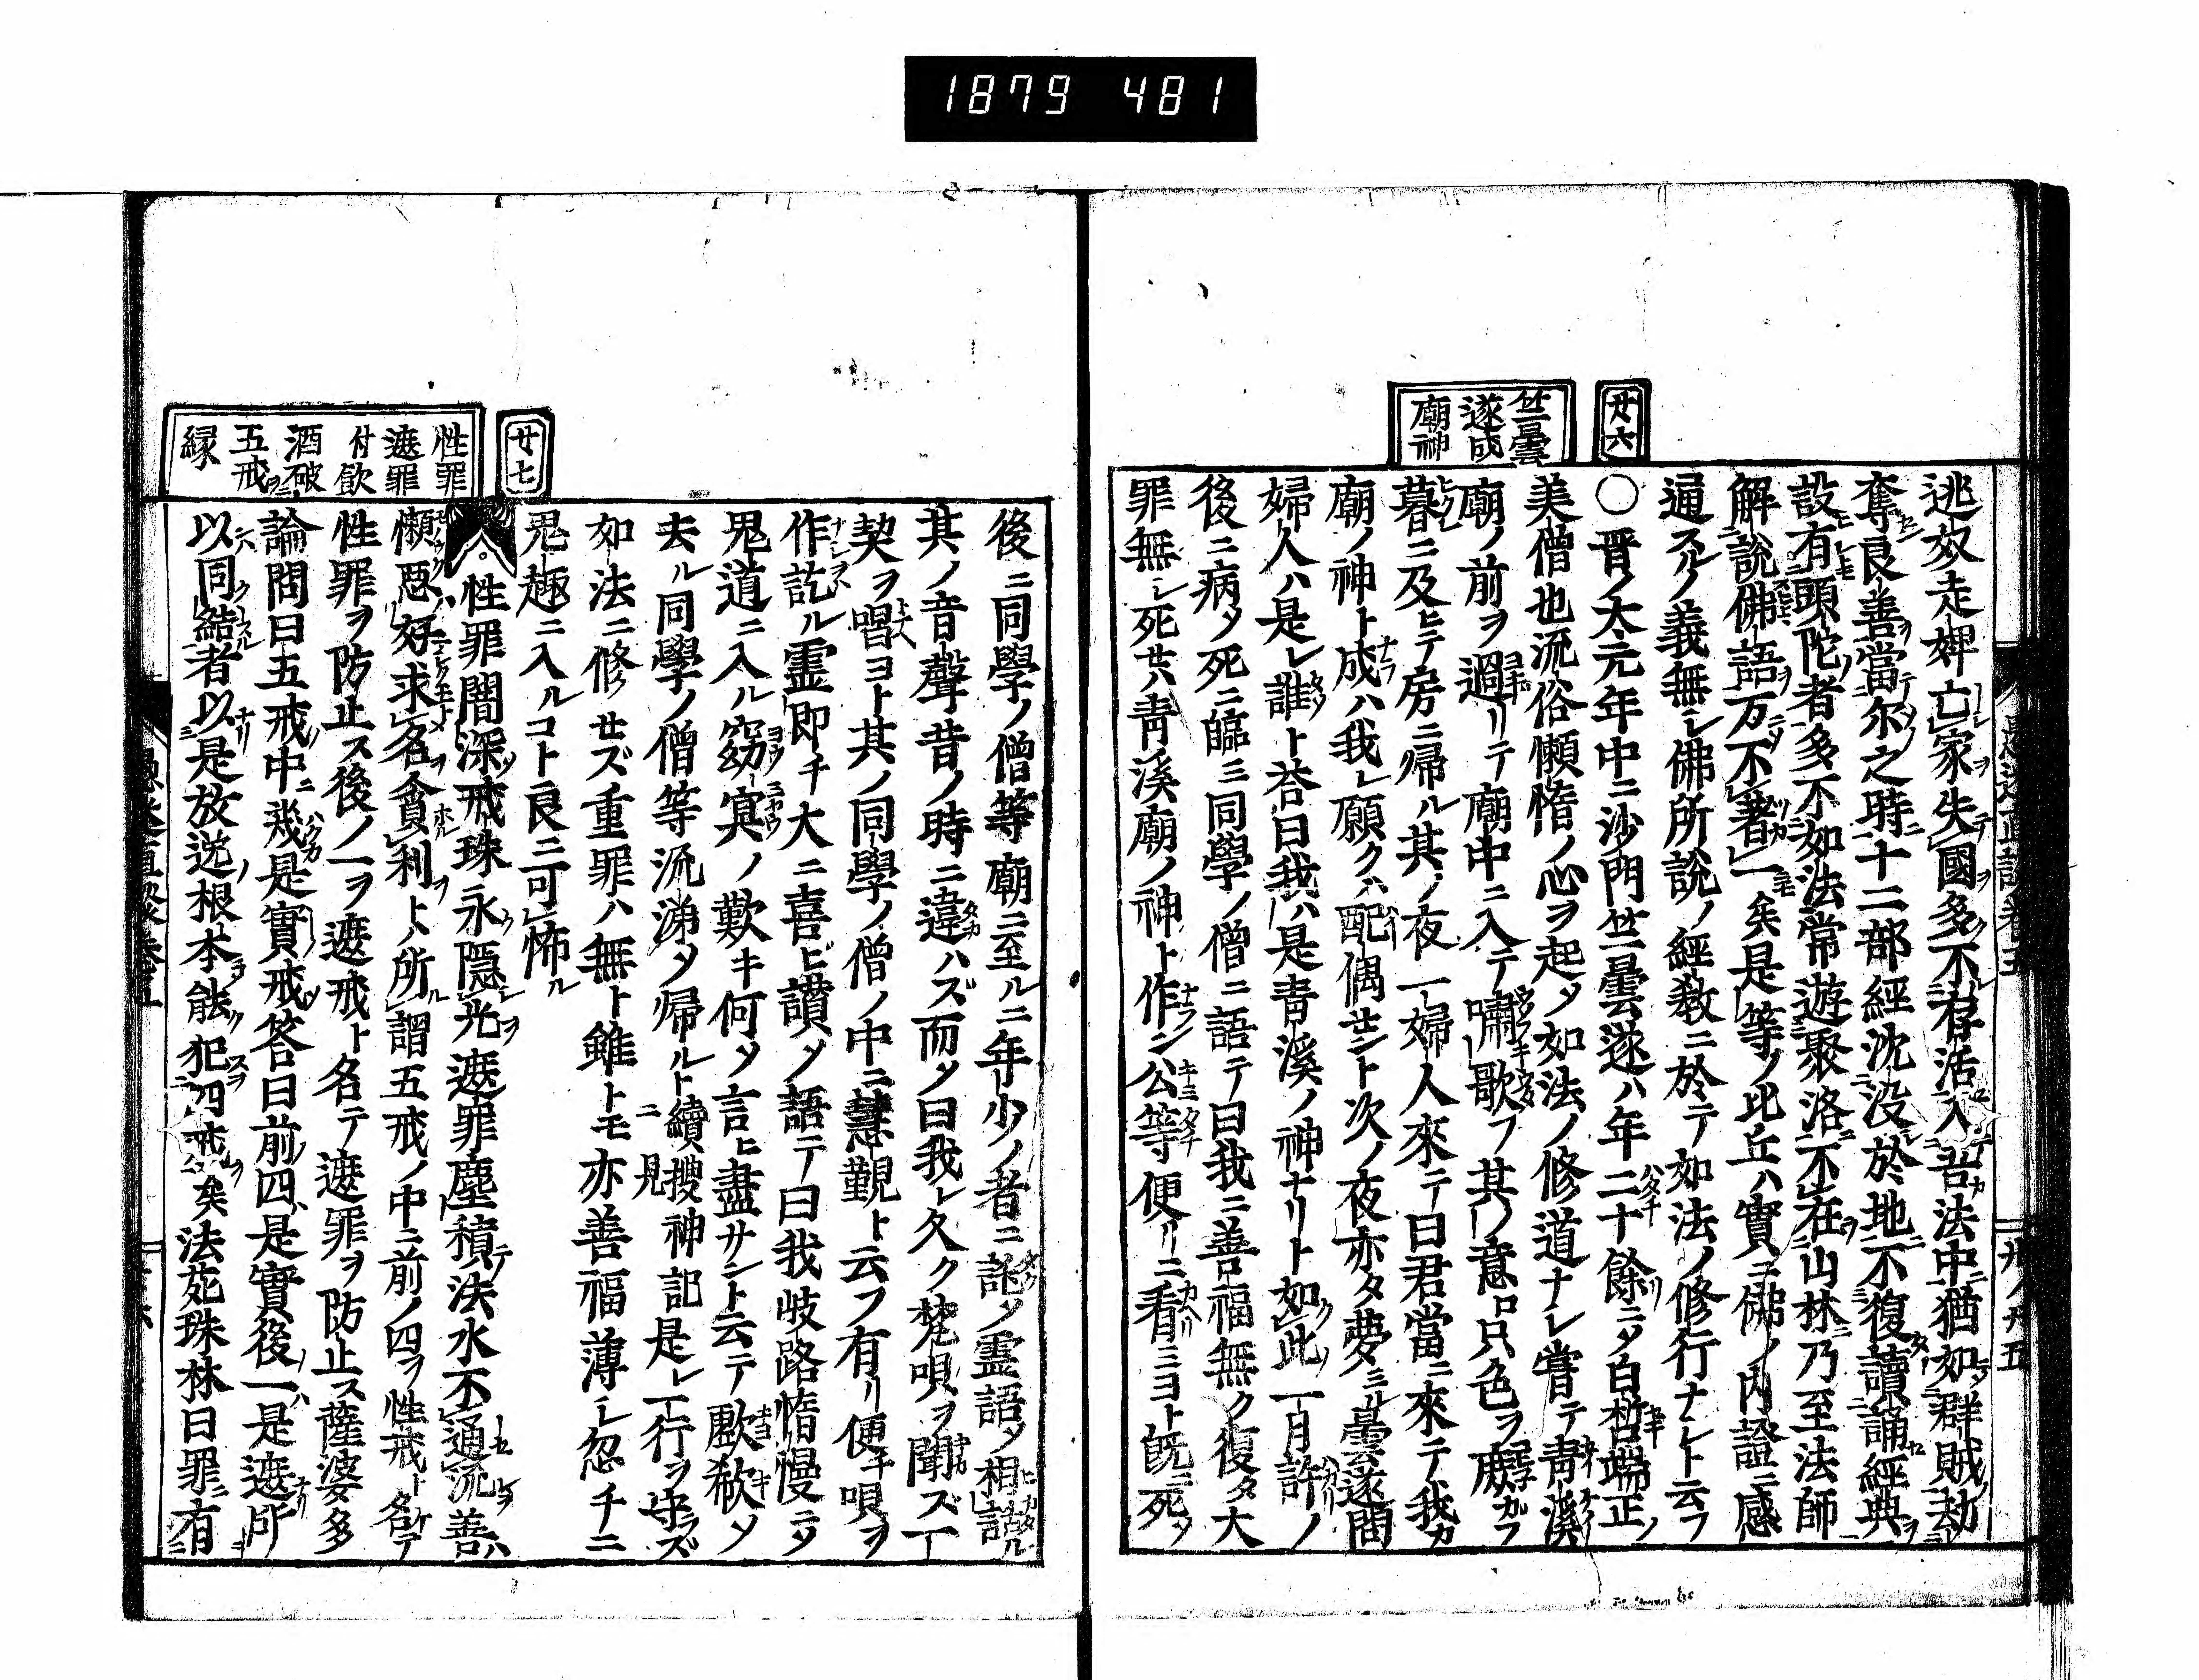 1879 481
廿六
竺曇
遂成
廟神
逃奴走婢亡家失國多不存活入吾法中猶如群賊劫
奪良善當尓之時十二部經沈没於地不復讀誦經典
設有頭陀者多不如法常遊聚洛不在山林乃至法師
解說佛語万不著一矣是等ノ比丘ハ實ニ佛ノ内證ニ感
通スルノ義無シ佛所說ノ經教ニ於テ如法ノ修行ナレト云フ
〇晋ノ大元年中ニ沙門竺曇遂ハ年二十餘ニメ白晢端正ノ
美僧也流俗懶惰ノ心ヲ起メ如法ノ修道ナレ嘗テ青溪
廟ノ前ヲ過リテ廟中ニ入テ嘯歌フ其ノ意ロ只色ヲ
暮ニ及ヒテ房ニ帰ル其ノ夜一婦人來テ曰君當ニ來テ我カ
廟ノ神ト成ハ我レ願クハ配偶せント次ノ夜亦タ夢ミル曇遂問
婦人ハ是レ誰ト荅曰我ハ是青溪ノ神ナリト如此一月許ノ
後ニ病メ死ニ臨ミ同學ノ僧ニ語テ曰我ニ善福無ク復タ大
罪無シ死せハ青溪廟ノ神ト作ン公等便リニ看ミヨト既ニ死メ
後ニ同學ノ僧等廟ニ至ルニ年少ノ者ニ詫メ霊語メ相話ル
其ノ音聲昔ノ時ニ違ハズ而メ曰我レ久ク梵唄ヲ聞ズ一
契ヲ唱ヨト其ノ同學ノ僧ノ中ニ慧覲ト云フ有リ便チ唄ヲ
作訖ル霊即チ大ニ喜ビ讃メ語テ曰我岐路惰慢ニメ
鬼道ニ入ル窈冥ノ歎キ何メ言ヒ盡サント云テ歔欷メ
去ル同學ノ僧等流涕メ帰ルト續搜神記ニ見是レ一行ヲ守ズ
如法ニ修せズ重罪ハ無ト雖トモ亦善福薄シ忽チニ
鬼趣ニ入ルコト良ニ可怖ル
廿七
性罪
遮罪
付飲
酒破
五戒
縁
性罪闇深戒珠永隱光遮罪塵積法水不通流善ハ
懶惡好求名貪利トハ所謂五戒ノ中ニ前ノ四ヲ性戒ト名テ
性罪ヲ防止ス後ノ一ヲ遮戒ト名テ遮罪ヲ防止ス薩婆多
論問曰五戒中ニ幾是實戒答曰前四ハ是實後一ハ是遮所
以同結者以是放逸根本能犯四戒矣法苑珠林曰罪有